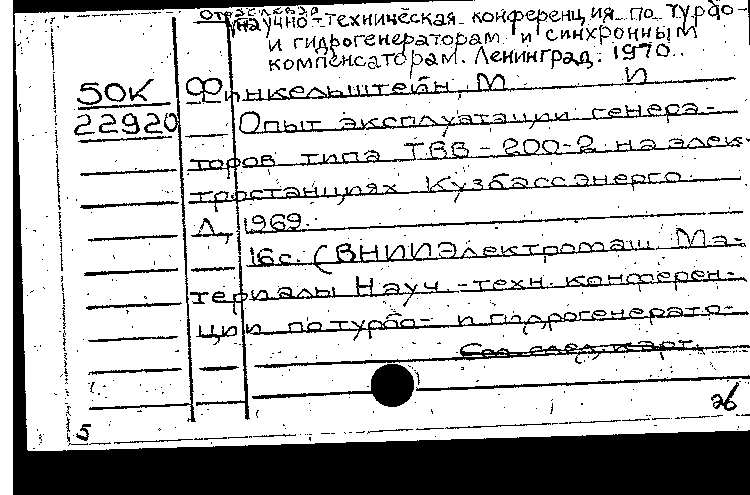 Отраслевая
научно-техническая конференция по турбо-
и гидрогенераторам и синхронным
компенсаторам. Ленинград. 1970.
50К Финкельштейн, М И
22920 Опыт эксплуатации генера-
торов типа ТВВ-200-2 на элек-
тростанциях Кузбассэнерго.
Л, 1969.
16с. (ВНИИЭлектромаш Ма-
териалы Науч.-техн. конферен-
ции по турбо- и гидрогенерато-
См. след. карт.
26
5